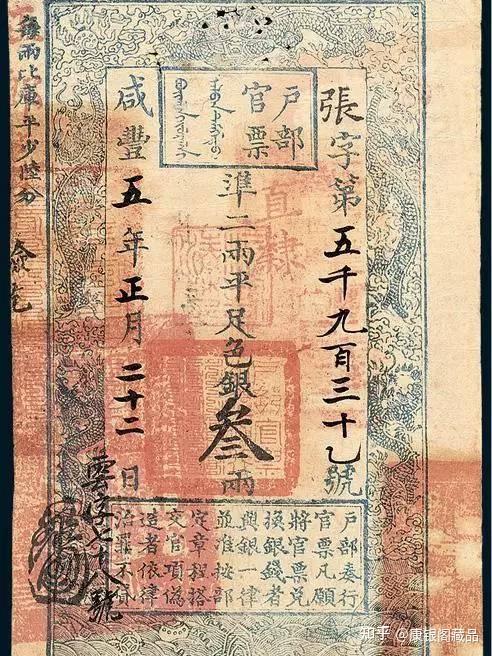 張字第五千九百三十乙號
戶部
官票
直隸
準二兩平足色銀叁兩
咸豐五年正月二十二日
戶部奏行
官票凡願
將官票兌
換銀錢者
與銀一律
並准按部
定章程搭
交官項偽
造者依律
治罪不貸
每兩比庫平少陸分
知乎 @康银阁藏品